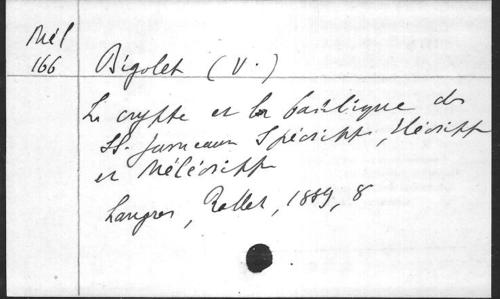 Mél
166
Bigolet (V.)
La crypte et la basilique des
SS. Jumeaux Spéosipp, Eléosipp
et Méléosipp
Langres, Rallet, 1889, 8